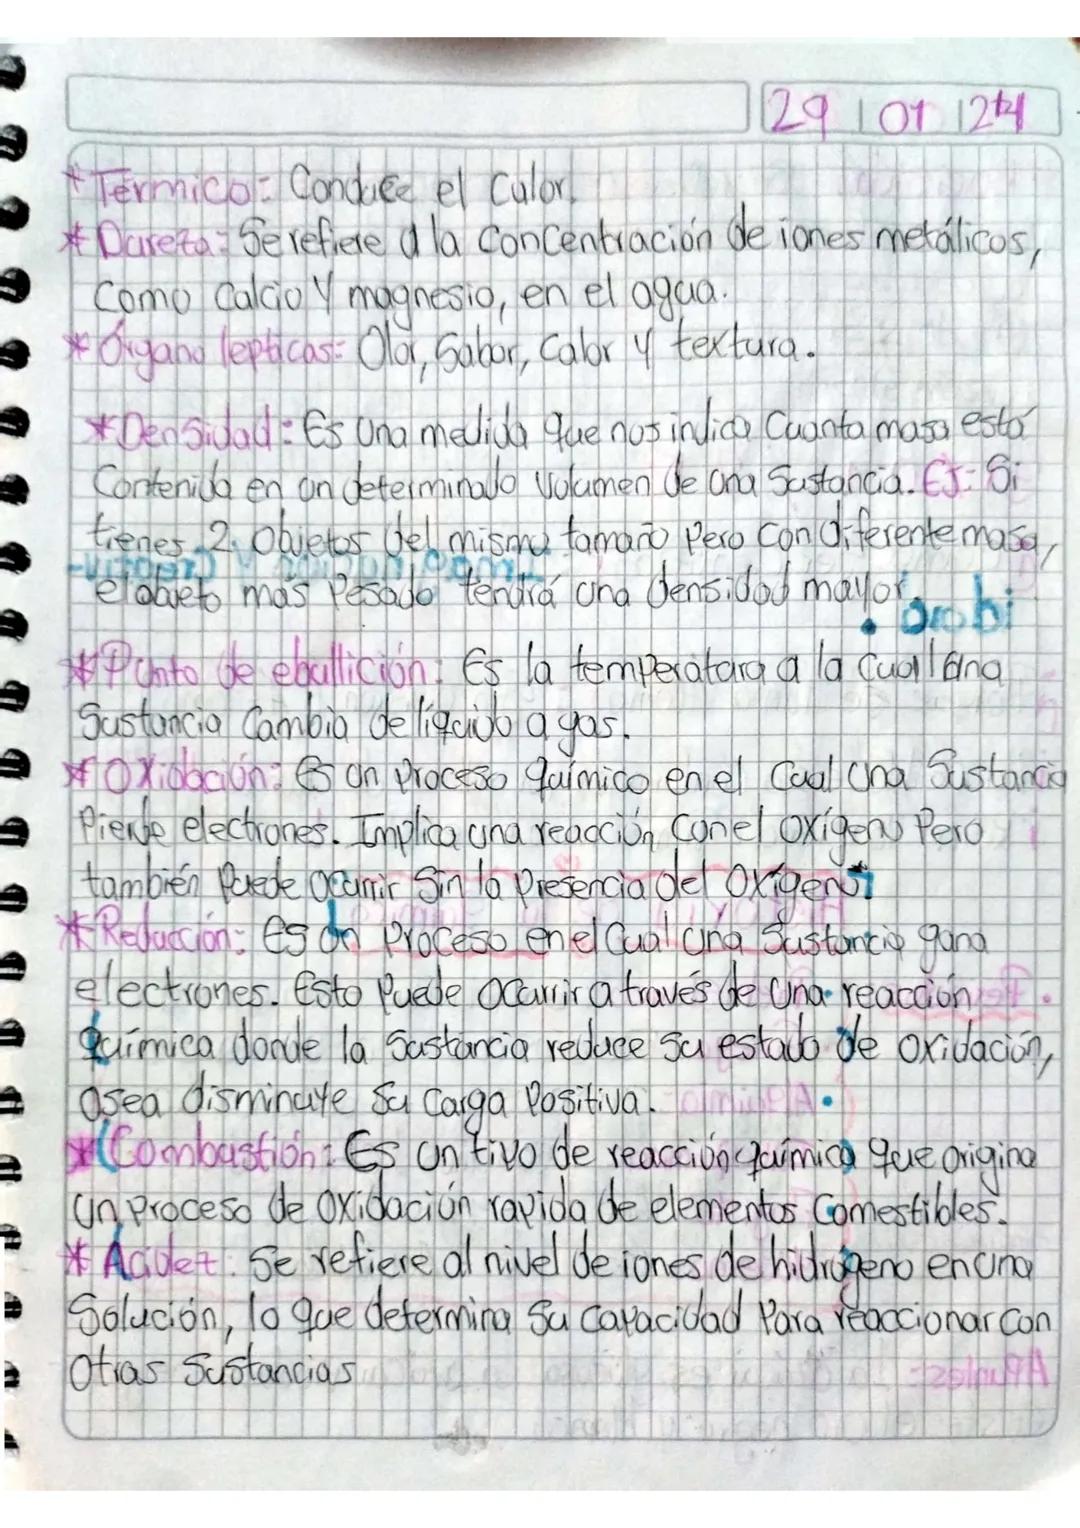 29 01 24
*Térmico: Conduce el Calor.
*Dureza: Se refiere a la Concentración de iones metálicos,
Como Calcio Y magnesio, en el agua.
*Órgano lepticas: Olor, Sabor, Calor y textura.
*Densidad: Es una medida que nos indica Cuanta masa está
Contenida en un determinado Volumen de una Sustancia. EJ: Si
tienes 2 Objetos del mismo tamaño Pero Con diferente masa,
el objeto más Pesado tendrá una densidad mayor.
*Punto de ebullición: Es la temperatura a la Cual una
Sustancia Cambia de liquido a gas.
*Oxidación: Es un Proceso químico en el Cual una Sustancia
Pierde electrones. Implica una reacción Con el oxígeno Pero
también Puede ocurrir Sin la Presencia del Oxígeno
*Reducción: Es un Proceso en el Cual una Sustancia gana
electrones. Esto Puede Ocurrir a través de una reacción
química donde la Sustancia reduce su estado de oxidación,
osea disminuye su Carga Positiva.
*Combustión: Es un tivo de reacción química que origina
un Proceso de oxidación rapida de elementos Comestibles.
*Acidez: Se refiere al nivel de iones de hidrógeno en una
Solución, lo que determina su Capacidad Para reaccionar con
Otras Sustancias